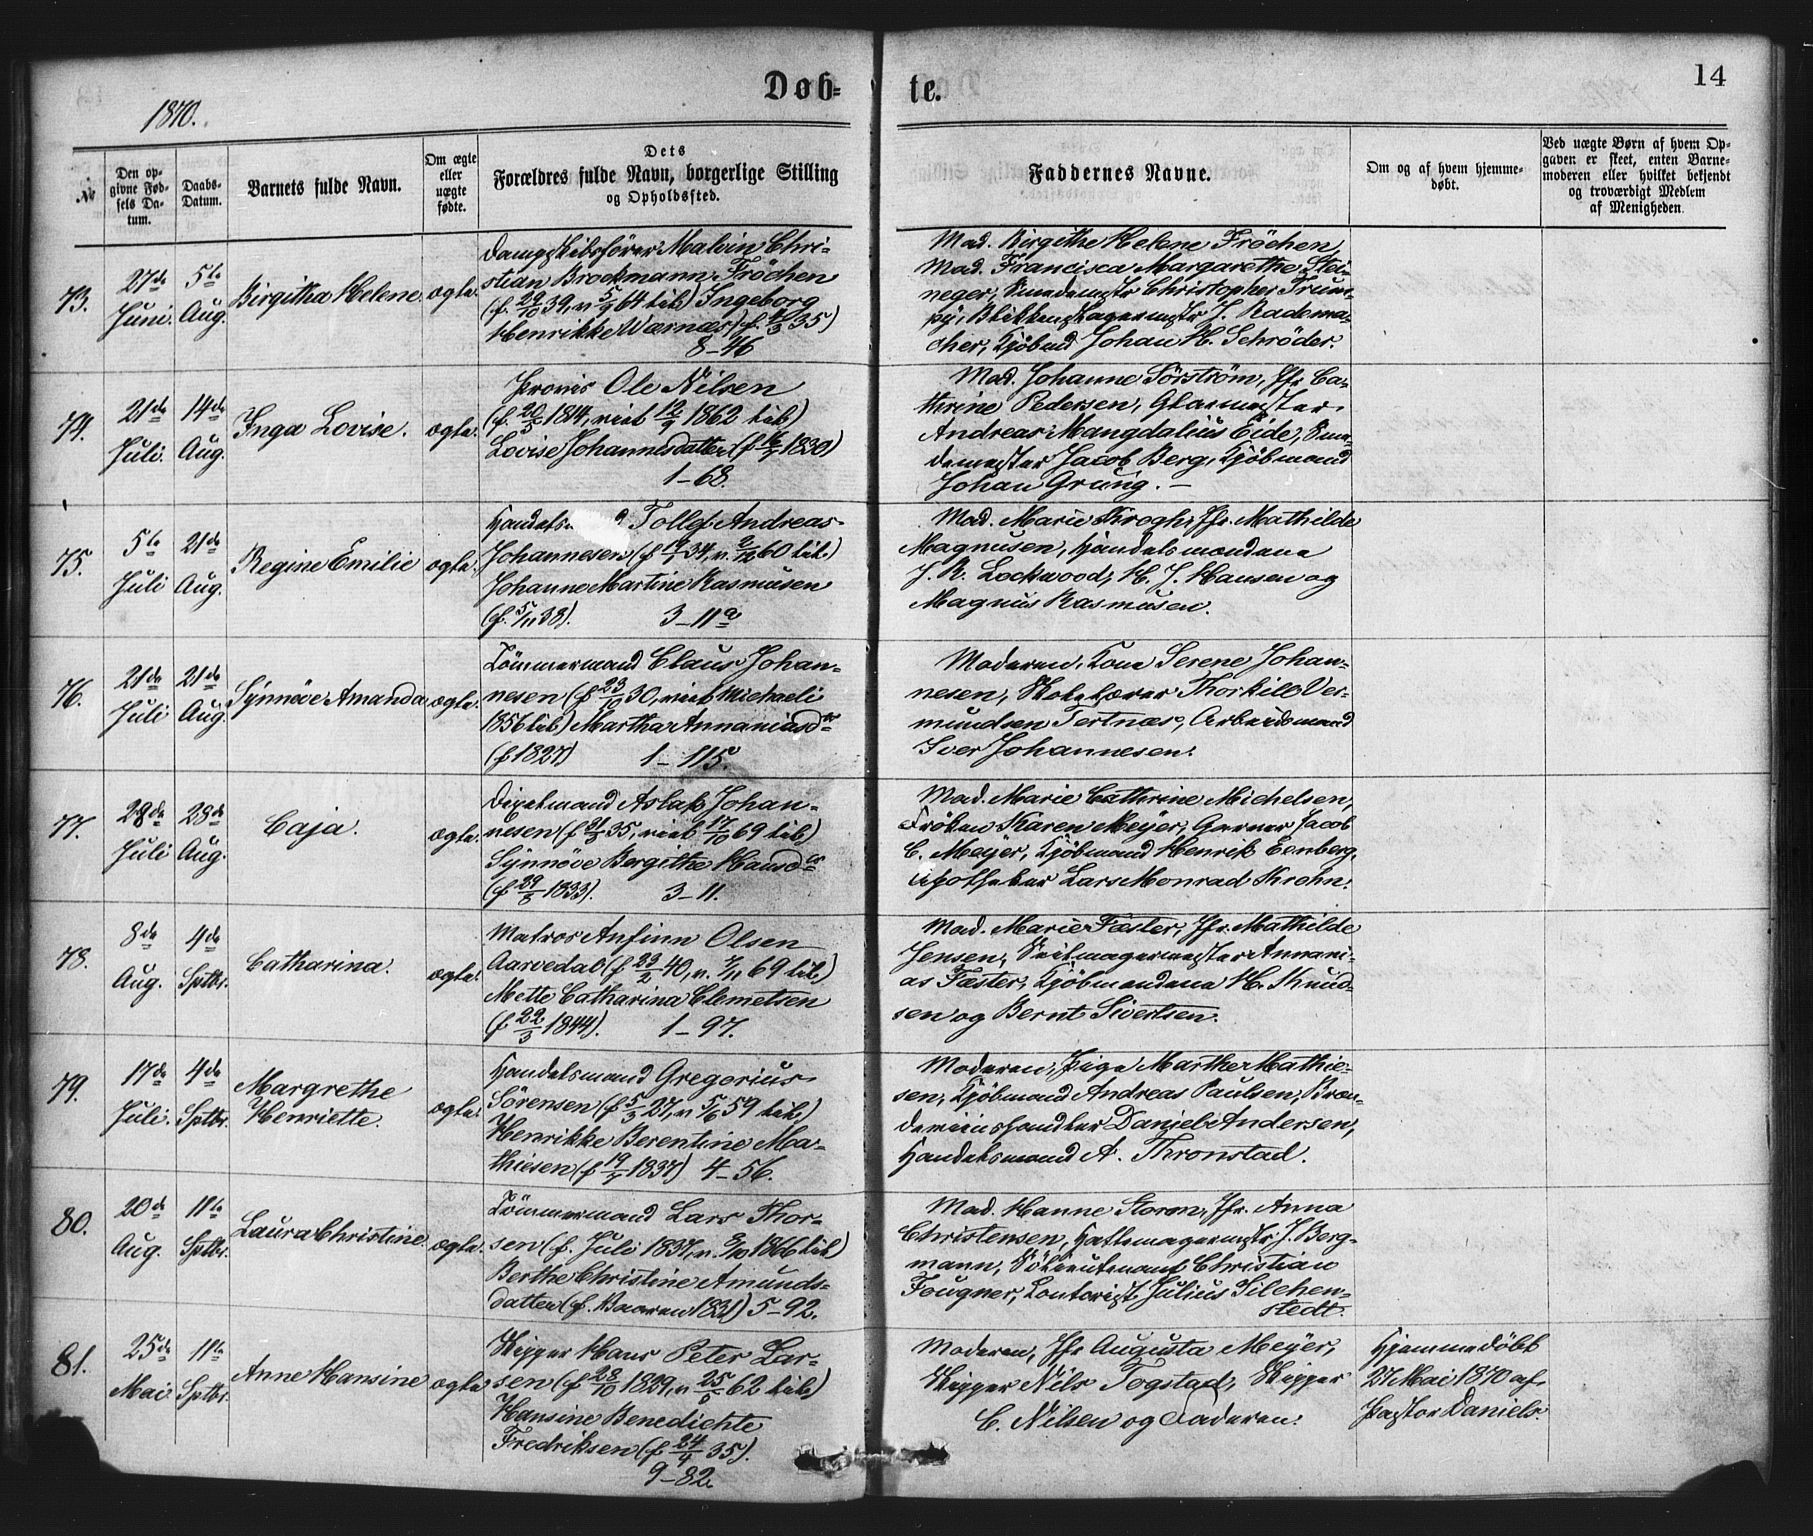 Døb-
te.
14
1870.
No
Den opgivne Fødsels Datum.
Daabs-Datum.
Barnets fulde Navn.
Om ægte eller uægte fødte.
Dets
Forældres fulde Navn, borgerlige Stilling
og Opholdssted.
Faddernes Navne.
Om og af hvem hjemmedøbt.
Ved uægte Børn af hvem Opgaven er skeet, enten Barnemoderen eller hvilket bekjendt og troværdigt Medlem af Menigheden
73.
27de Juni.
5te Aug.
Birgitha Helene.
ægte.
Dampskibsfører Malvin Chri-
stian Brockmann Fröchen
(f. 29/10 39, v. 5/9 64 lib) Ingeborg
Henrikke Wærnæs) f. 4/3 35)
8-46
Mad. Birgithe Helene Fröchen,
Mad. Francisca Margarethe Stei-
neger, Smedemstr Christopher Trum-
py, Blikkenslagermstr J. Radema-
cher, Kjöbmd Johan H. Schröder.
74.
21de Juli.
14de Aug.
Inga Lovise.
ægte.
Provis Ole Nilsen
(f. 20/5 1814, viet 12/9 1862 lib)
Lovise Johannesdatter (f 16/7 1830)
1-68.
Mad. Johanne Sörström, Jfr. Ca-
thrine Pedersen, Glasmester
Andreas Mangdalius Eide, Sme-
demester Jacob Berg, Kjöbmand
Johan Grung. -
75.
5te Juli
21de Aug.
Regine Emilie
ægte.
Handels d Tollef Andreas
Johannesen (f 34, v. 2/12 60 lib)
Johanne Martine Rasmusen
(f. 5/11 38). 3-11a
Mad. Marie Krogh, Jfr. Mathilde
Magnusen, Handelsmændene
J. R. Lockwood, H. J. Hansen og
Magnus Rasmusen.
76.
21de Juli
21de Aug.
Synnöve Amanda
ægte.
Tömmermand Claus Johan-
nesen (f 23/10 30, viet Michaeli
1856 lib) Martha Annaniasdr
(f 1827) 1-115.
Moderen, Kone Serene Johan-
nesen, Skolelærer Thorkild Ves-
mundsen Tertnæs, Arbeidsmand
Iver Johannesen.
77.
28de Juli
28de Aug.
Caja.
ægte.
Digelmand Aslak Johan-
nesen (f 21/5 35, viet 17/10 69 lib)
Synnöve Bergithe Hansdr
(f 29/8 1833). 3-11.
Mad. Marie Cathrine Michelsen,
Fröken Karen Meyer, Garver Jacob
C. Meyer, Kjöbmand Henrik Eenberg,
Apotheker Lars Monrad Krohn.
78.
8de Aug.
4de Sptbr.
Catharina.
ægte.
Matros Anfinn Olsen
Aarvedal (f 23/2 40, v. 7/11 69 lib)
Mette Catharina Clemetsen
(f 22/3 1844). 1-97.
Mad. Marie Fæster, Jfr. Mathilde
Jensen, Seilmagermester Annani-
as Fæster, Kjöbmændene H. Knud-
sen og Bernt Sivertsen.
79.
17de Juli.
4de Sptbr.
Margrethe
Henriette.
ægte.
Handelsmand Gregorius
Sörensen (f 5/3 27, v 5/6 59 lib)
Henrikke Berentine Ma-
thiesen (f 19/7 1837) 4-56.
Moderen, Pige Marthe Mathie-
sen, Kjöbmand Andreas Paulsen, Bræn-
deviinshandler Daniel Andersen,
Handelsmand A. Thronstad.
80.
20de Aug.
11te Sptbr.
Laura Christine.
ægte.
Tömmermand Lars Thor-
sen (f. Juli 1837, v. 9/10 1866 lib)
Berthe Christine Amunds-
datter (f. Vaaren 1831) 5-92.
Mad. Hanne Storm, Jfr. Anna
Christensen, Hattemagermstr J. Berg-
mann, Sölieutenant Christian
Fougner, Contorist Julius Silchen-
stedt.
81.
25de Mai
11te Sptbr.
Anne Hansine
ægte
Skipper Hans Peter Lar-
sen (f 28/10 1829, v 25/5 62 lib)
Hansine Benedichte
Fredriksen (f 24/4 35).
9-82.
Moderen, Jfr Augusta Meyer,
Skipper Nils Togstad, Skipper
C. Nilsen og Faderen.
Hjemmedöbt
27 Mai 1870 af
Pastor Daniels.